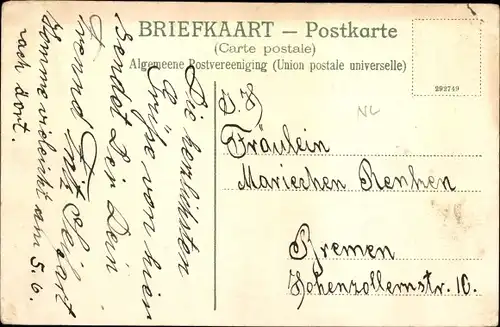 BRIEFKAART – Postkarte
(Carte postale)
Algemeene Postvereeniging (Union postale universelle)
292749
NL
Fräulein
Mariechen Renken
Bremen
Hohenzollernstr. 10.
Die herzlichsten
Grüße von hier
sendet Dir Dein
Freund Fritz
Komme vieleicht am 5.6.
nach dort.